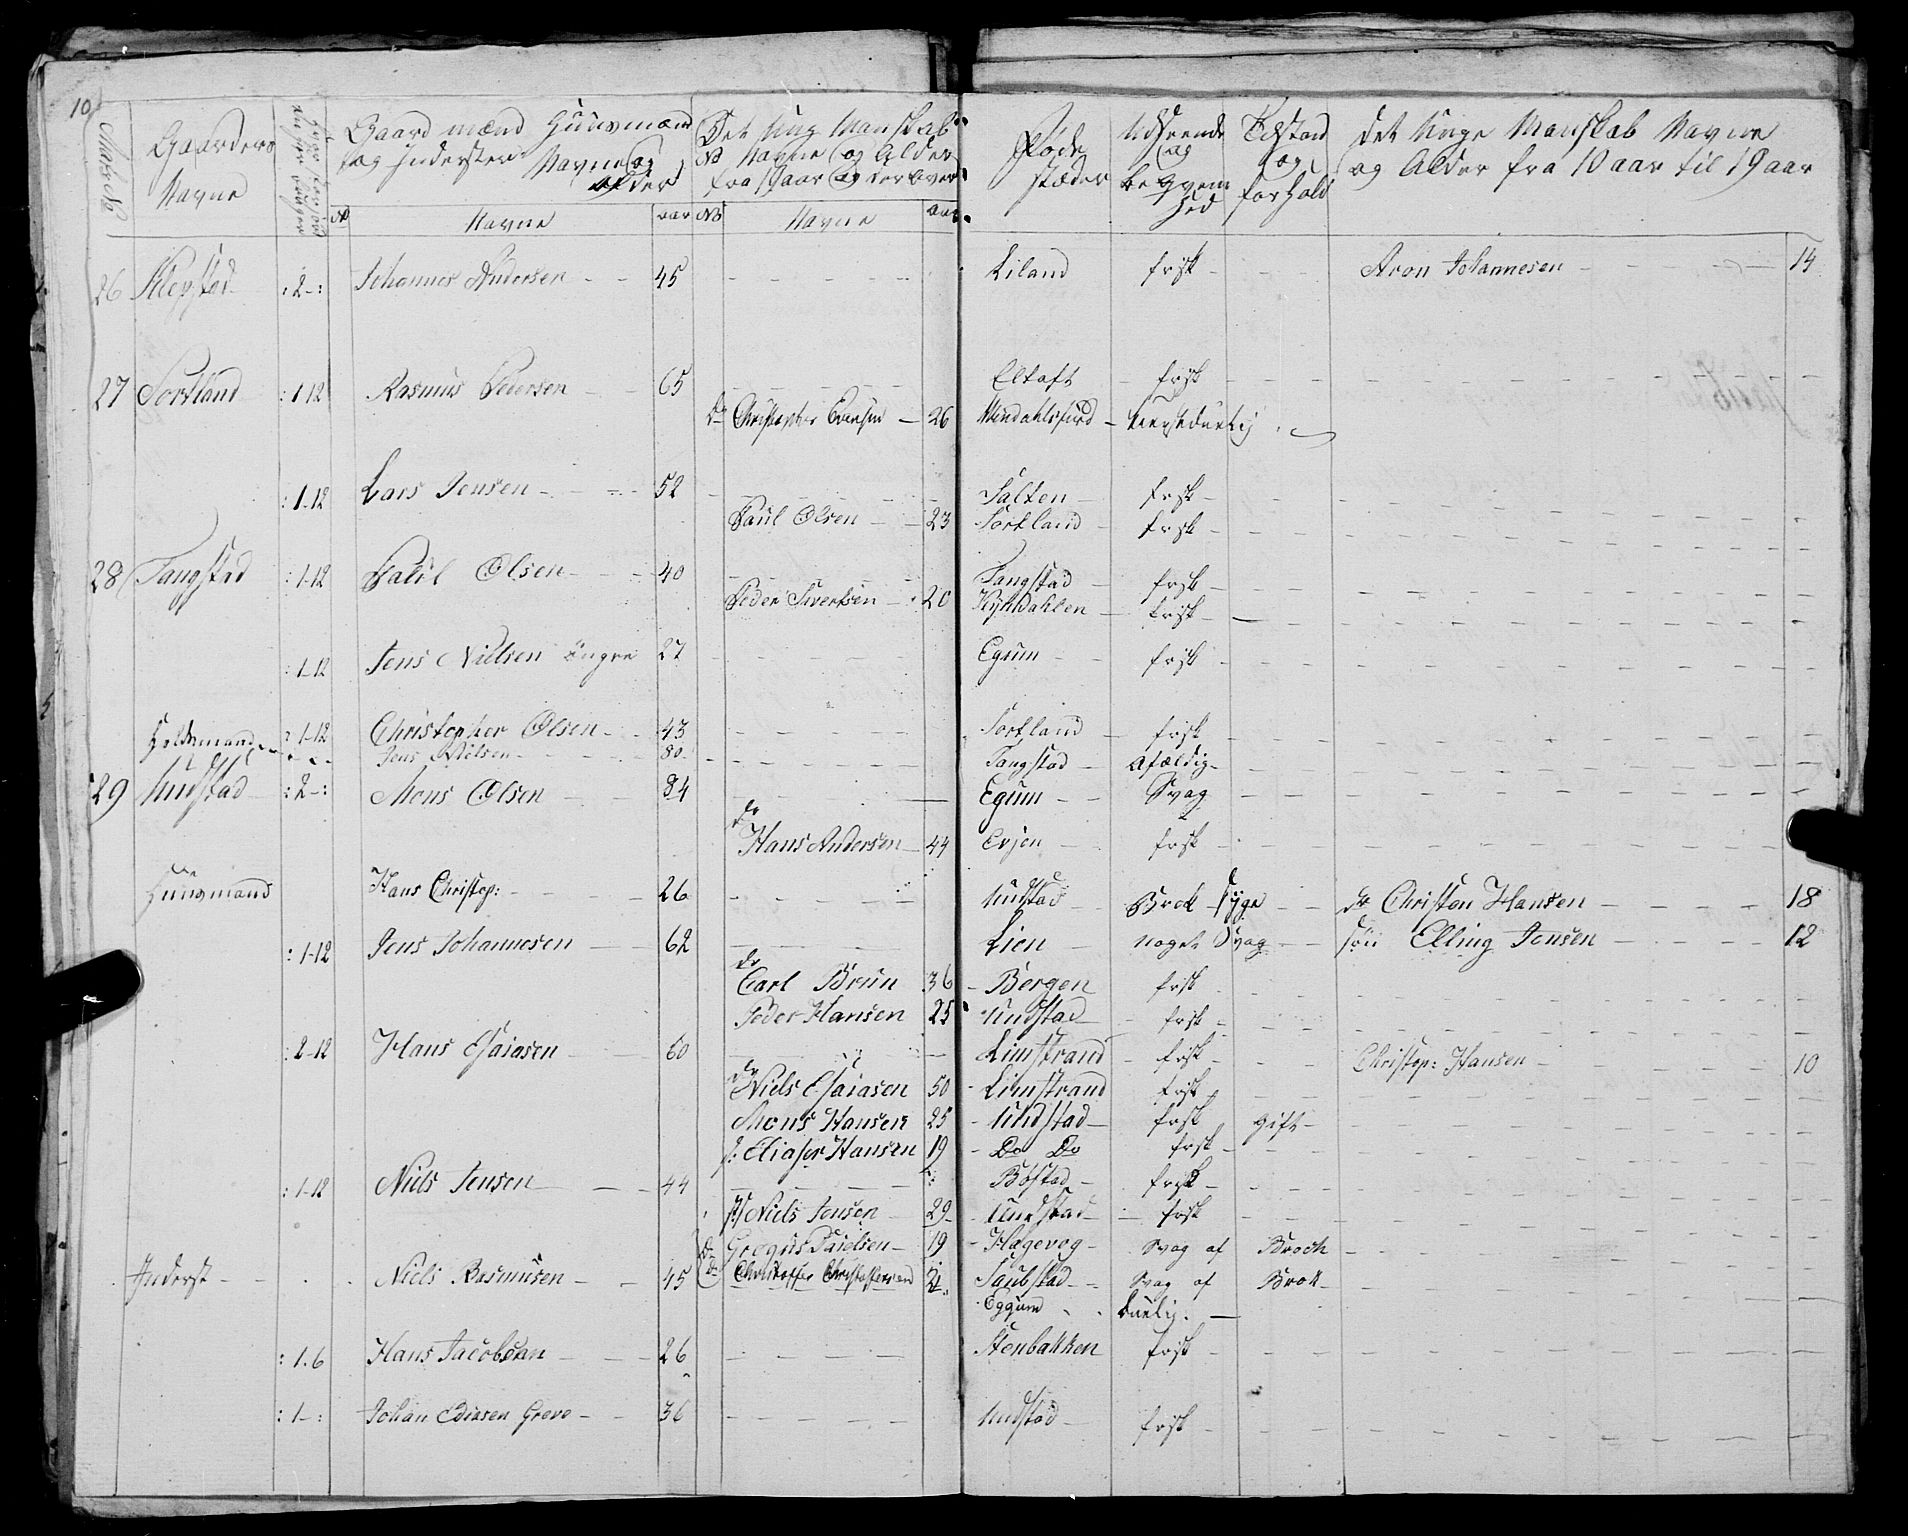 10
Matr No
Gaarders Navne
Gaard mænd Huusmænd og Inderster Navne og alder
No Navne aar
Det Ung Manskab No Navne og Alder fra 19 aar og der over
No Navne aar
Føde stæder
Udseende og beqvem hed
Tilstand og forhold
Det Unge Manskab Navne og Alder fra 10 aar til 19 aar
26 Klepstad :2-: Johannes Andersen - - 45 - - - - Liland frisk - - - Aron Johannesen - - - - 14
27 Sortland :1-12 Rasmus Pedersen - 65 - - - - Eltoft - frisk - - - -
Do Christopher Evensen - 26 Mindahlsfiord -
:1-12 Lars Jensen - - - 52 - - - - Salten - frisk -
Paul Olsen - - 23 Sortland - frisk -
28 Tangstad :1-12 Paul Olsen - - 40 - - - - Tangstad - frisk -
Peder Sivertsen - 20 - frisk - -
:1-12 Jens Nielsen yngre 27 - - - - Egum - - frisk -
1-12 Christopher Olsen - 43 - - - - Sortland - frisk -
Jens Nielsen - - - 80 - - - - Tangstad - Afældig -
29 Uudstad :2-: Mons Olsen - 84 - - - - Egum - - Svag - - -
do Hans Andersen - 44 Evjen - frisk -
Huusmand Hans Christop: - - 26 - - - - Uudstad - Brok syge - - do Christen Hansen - - - - 18
:1-12 Jens Johannesen - 62 - - - - Lien - noget Svag - - søn Elling Jensen - - - - 12
do Carl Brun 36 - Bergen frisk - - -
Peder Hansen 25 Uudstad - - frisk - - -
:2-12 Hans Esaiasen - - 60 - - - - Limstrand - frisk - - - Christop: Hansen - - - 10
do Niels Esaiasen 50 - Limstrand frisk - - -
Mons Hansen 25 - Uudstad - frisk gift -
s: Eliaser Hansen 19 - Do Do frisk - - -
:1-12 Niels Jensen - - 44 - - - - Bostad - frisk - - -
Niels Jensen 29 - Uudstad - - frisk - - -
Do - 19 - Hagevog - Svag af Brock - - -
Inderst - - - Niels Rasmusen - - 45 do Christoffer Christoffersen 21 Saubstad - - Svag af Brok -
Eggum - - duelig. -
:1.6 Hans Jacobsen - - 26 - - - - Stenbakken frisk - - -
:1-: Johan Greve - - 36 - - - - Uudstad - frisk - - -